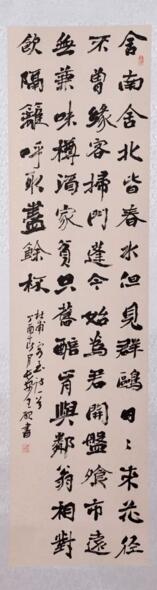 舍南舍北皆春水但見群鷗日〻來花徑
不曾緣客掃門蓬今始為君開盤飱市遠
無兼味樽酒家貧只舊醅肯與鄰翁相對
飲隔籬呼取盡餘杯
杜甫客至詩一首
丁酉 書